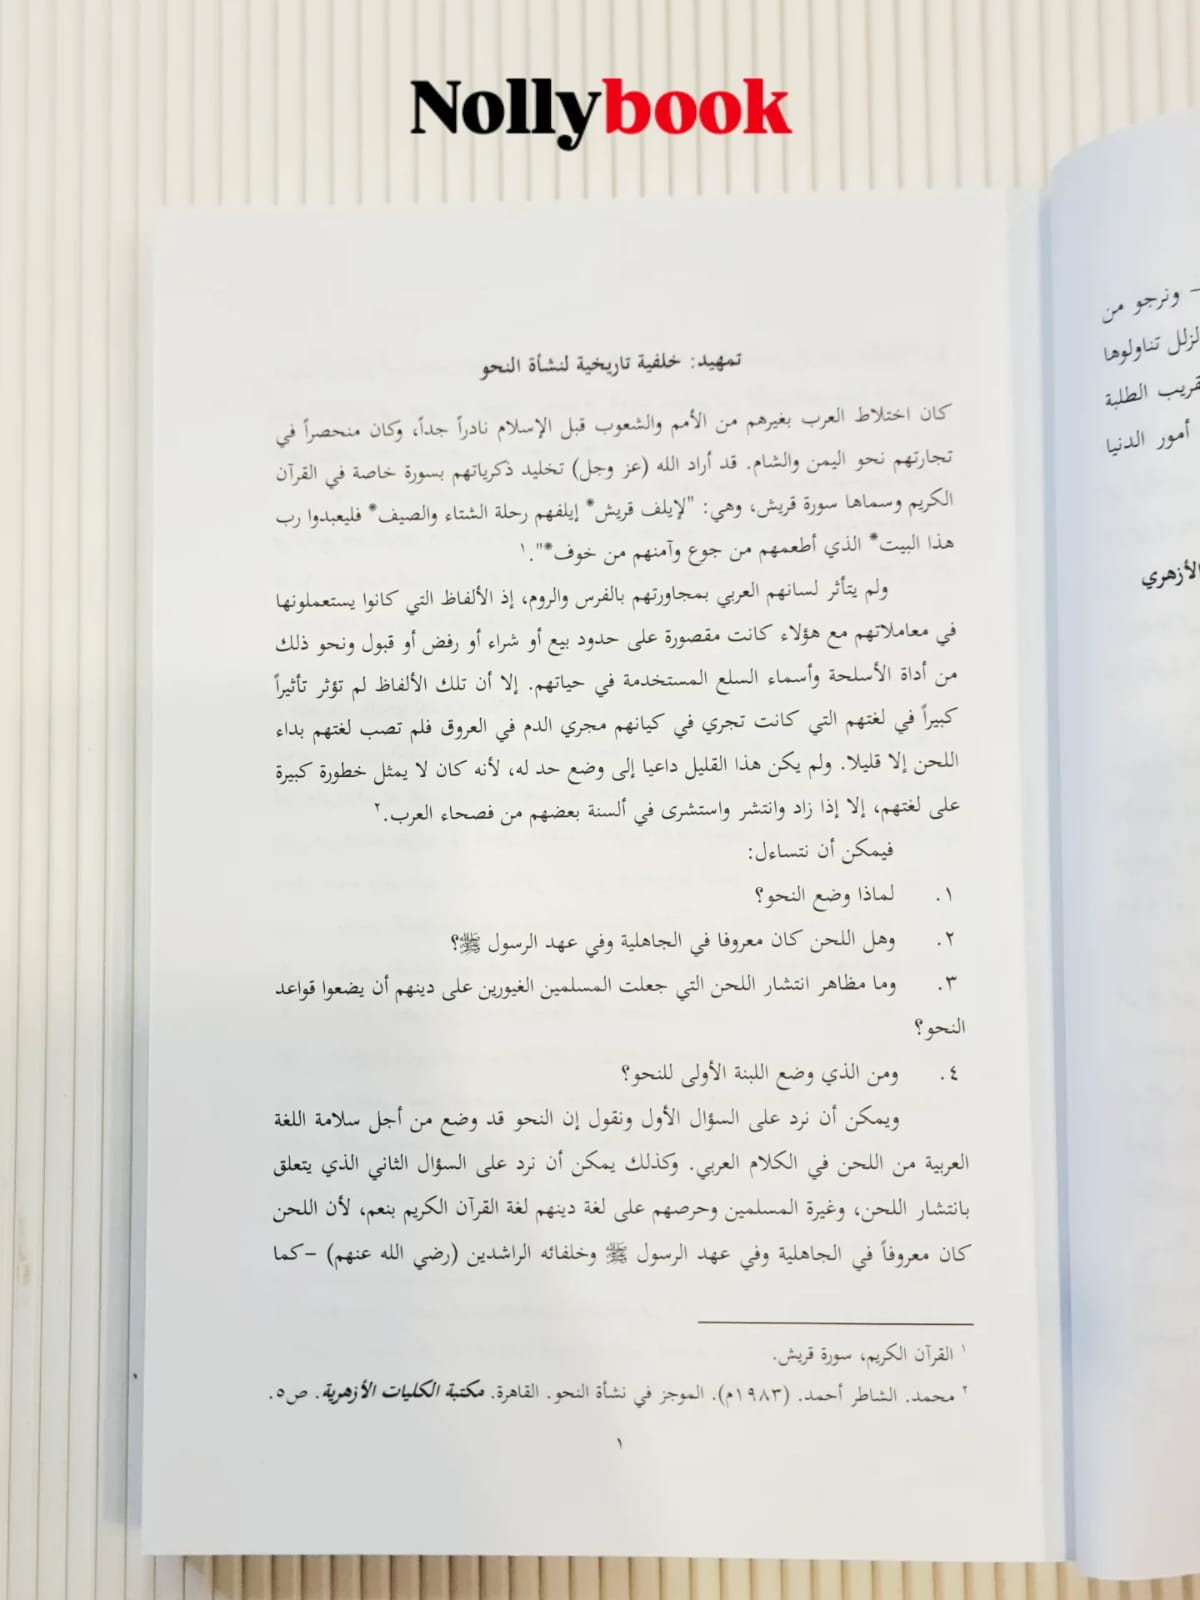 Nollybook
تمهيد: خلفية تاريخية لنشأة النحو
كان اختلاط العرب بغيرهم من الأمم والشعوب قبل الإسلام نادراً جداً، وكان منحصراً في
تجارتهم نحو اليمن والشام. قد أراد الله (عز وجل) تخليد ذكرياتهم بسورة خاصة في القرآن
الكريم وسماها سورة قريش، وهي: "لإيلف قريش* إيلفهم رحلة الشتاء والصيف* فليعبدوا رب
هذا البيت* الذي أطعمهم من جوع وآمنهم من خوف*".١
ولم يتأثر لسانهم العربي بمجاورتهم بالفرس والروم، إذ الألفاظ التي كانوا يستعملونها
في معاملاتهم مع هؤلاء كانت مقصورة على حدود بيع أو شراء أو رفض أو قبول ونحو ذلك
من أداة الأسلحة وأسماء السلع المستخدمة في حياتهم. إلا أن تلك الألفاظ لم تؤثر تأثيراً
كبيراً في لغتهم التي كانت تجري في كيانهم مجري الدم في العروق فلم تصب لغتهم بداء
اللحن إلا قليلا. ولم يكن هذا القليل داعيا إلى وضع حد له، لأنه كان لا يمثل خطورة كبيرة
على لغتهم، إلا إذا زاد وانتشر واستشرى في ألسنة بعضهم من فصحاء العرب.٢
فيمكن أن نتساءل:
١. لماذا وضع النحو؟
٢. وهل اللحن كان معروفا في الجاهلية وفي عهد الرسول ﷺ؟
٣. وما مظاهر انتشار اللحن التي جعلت المسلمين الغيورين على دينهم أن يضعوا قواعد
النحو؟
٤. ومن الذي وضع اللبنة الأولى للنحو؟
ويمكن أن نرد على السؤال الأول ونقول إن النحو قد وضع من أجل سلامة اللغة
العربية من اللحن في الكلام العربي. وكذلك يمكن أن نرد على السؤال الثاني الذي يتعلق
بانتشار اللحن، وغيرة المسلمين وحرصهم على لغة دينهم لغة القرآن الكريم بنعم، لأن اللحن
كان معروفاً في الجاهلية وفي عهد الرسول ﷺ وخلفائه الراشدين (رضي الله عنهم) –كما
١ القرآن الكريم، سورة قريش.
٢ محمد. الشاطر أحمد. (١٩٨٣م). الموجز في نشأة النحو. القاهرة. مكتبة الكليات الأزهرية. ص٥.
١
– ونرجو من
لزلل تناولوها
قريب الطلبة
أمور الدنيا
الأزهري